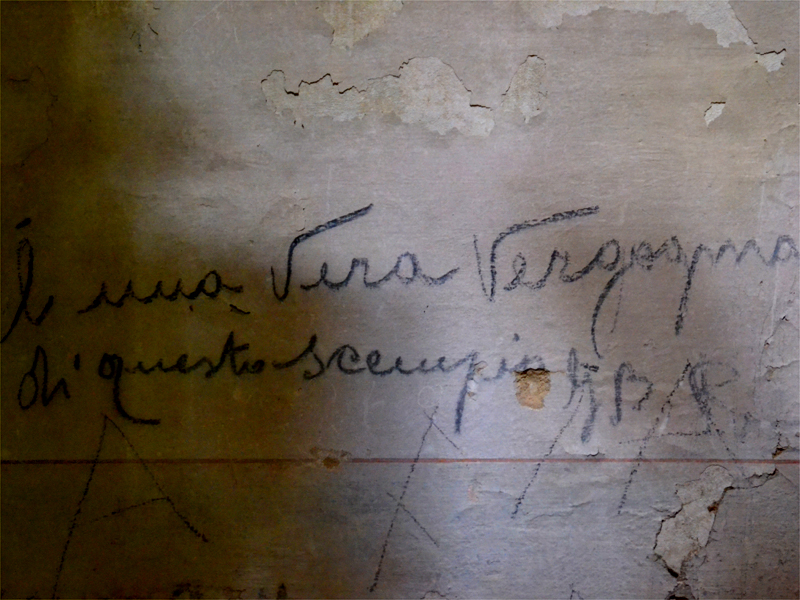 È una Vera Vergogna
di questo scempio
A A A A